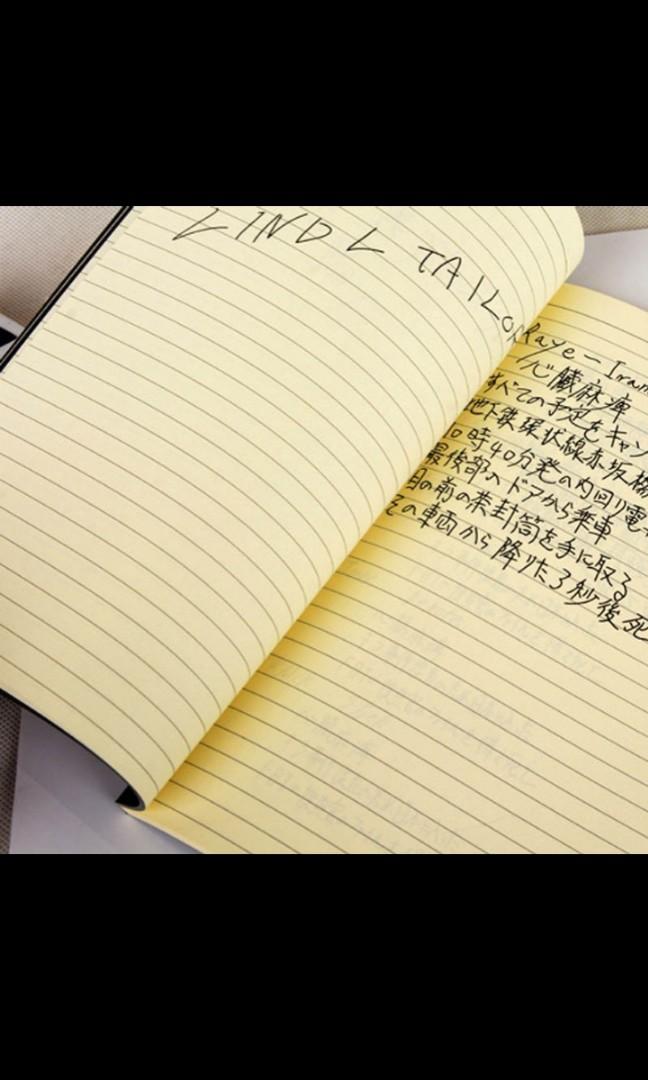 LIND L TAILOR
Raye — Iram
心臓麻痺
すべての予定をキャン
地下鉄環状線赤坂橋
10時40分発の内回り電
最後部のドアから乗車
目の前の茶封筒を手に取る
その車両から降りた3秒後死